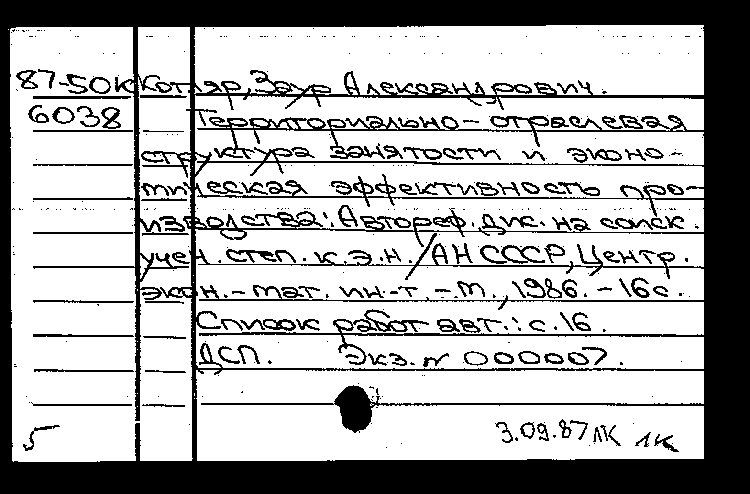 87-50к Котляр, Заур Александрович.
6038 Территориально-отраслевая
структура занятости и эконо-
мическая эффективность про-
изводства: Автореф. дис. на соиск.
учен. степ. к.э.н. /АН СССР, Центр.
экон.-мат. ин-т. - М., 1986. - 16с.
Список работ авт.: с. 16.
ДСП. Экз. № 000007.
5 3.09.87 ЛК 1к